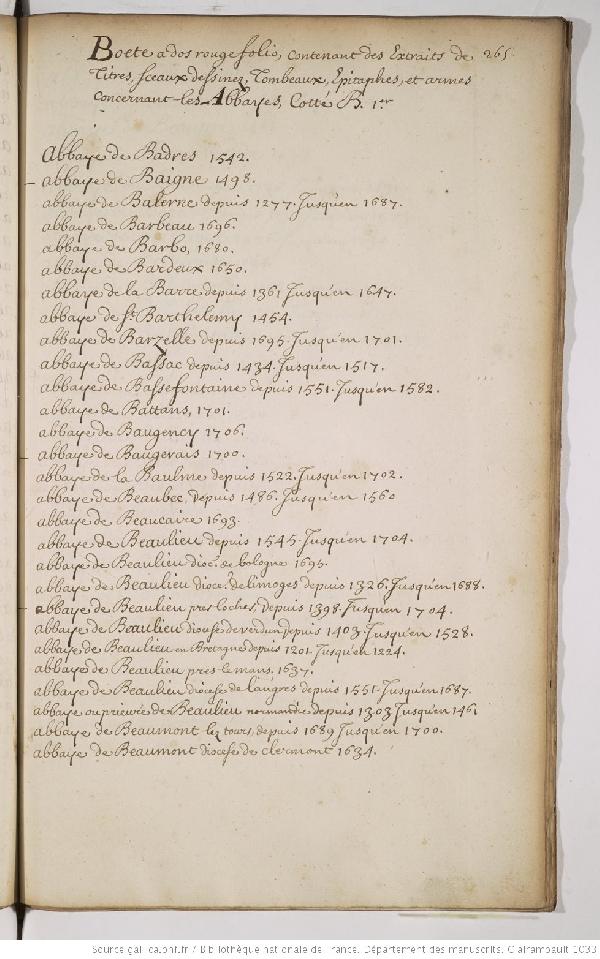 Boete a dos rouge folio, contenant des Extraits de 265.
Titres, sceaux dessinez, Tombeaux, Epitaphes, et armes
concernant les Abbayes, Cotté B. 1er
Abbaye de Badres 1542.
abbaye de Baigne 1498.
abbaye de Balerne depuis 1277. Jusqu'en 1687.
abbaye de Barbeau 1696.
abbaye de Barbo, 1680.
abbaye de Bardeux 1650.
abbaye de la Barre depuis 1361 Jusqu'en 1647.
abbaye de St. Barthelemy 1454.
abbaye de Barzelle depuis 1695. Jusqu'en 1701.
abbaye de Bassac depuis 1434. Jusqu'en 1517.
abbaye de Bassefontaine depuis 1551. Jusqu'en 1582.
abbaye de Battans, 1701.
abbaye de Baugency 1706.
abbaye de Baugerais 1700.
abbaye de la Baulme depuis 1522. Jusqu'en 1702.
abbaye de Beaubec, depuis 1486. Jusqu'en 1560
abbaye de Beaucaire 1693.
abbaye de Beaulieu depuis 1545. Jusqu'en 1704.
abbaye de Beaulieu dioc. de bologne 1695.
abbaye de Beaulieu dioce. de limoges depuis 1326. Jusqu'en 1688.
abbaye de Beaulieu pres loches, depuis 1398. Jusqu'en 1704.
abbaye de Beaulieu diocese de verdun depuis 1403. Jusqu'en 1528.
abbaye de Beaulieu en Bretagne depuis 1201. Jusqu'en 1224.
abbaye de Beaulieu pres le mans. 1637.
abbaye de Beaulieu diocese de langres depuis 1551. Jusqu'en 1687.
abbaye ou prieuré de Beaulieu normandie depuis 1303 Jusqu'en 146
abbaye de Beaumont lez tours, depuis 1689. Jusqu'en 1700.
abbaye de Beaumont diocese de clermont 1634.
Source gallica.bnf.fr / Bibliothèque nationale de France. Département des manuscrits. Clairambault 1033